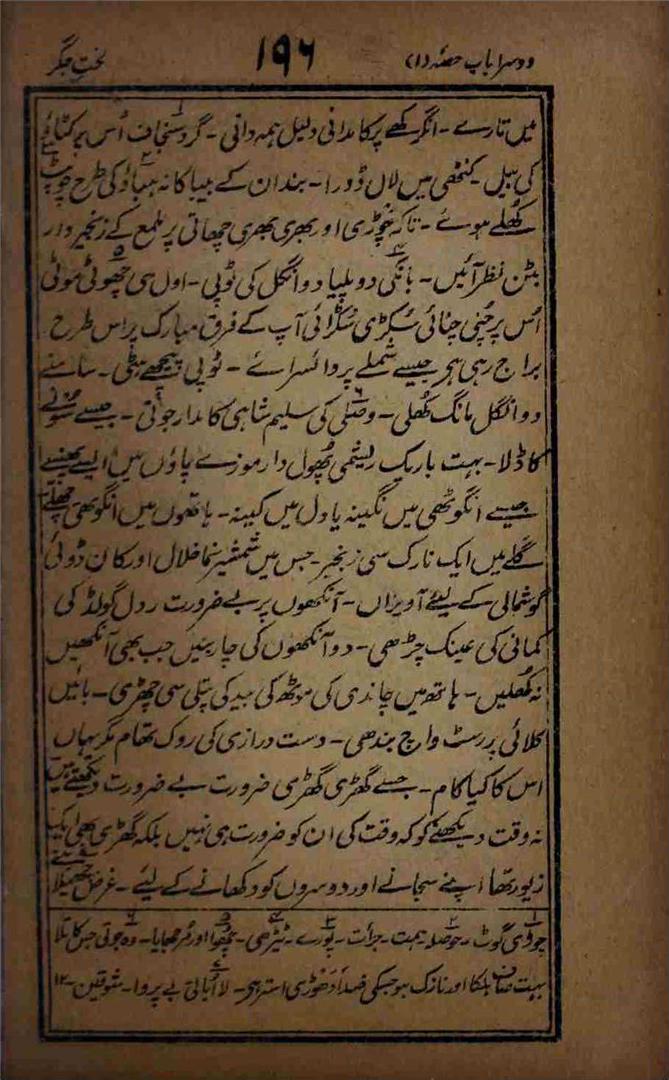 دوسرا باب حصہ (۱) ۱۹۶ لختِ جگر
میں تارے۔ انگرکھے پر کامدانی دلیل ہمہ دانی۔ گرد سنجاف اُس پر کناؤ
کی بیل۔ کنٹھی میں لال ڈورا۔ بند ان کے بیباکانہ ہیاؤ کی طرح چوپٹ
کھلے ہوئے۔ تاکہ چوڑی اور بھری بھری چھاتی پر ملمع کے زنجیر دار
بٹن نظر آئیں۔ بانکی دوپلیا دو انگل کی ٹوپی۔ اول ہی چھوٹی موٹی
اُس پر چُنی چنائی سُکڑی سُکڑائی آپ کے فرقِ مبارک پر اس طرح
براج رہی ہے جیسے شملے پر وائسرائے۔ ٹوپی پیچھے ہٹی۔ سامنے
دو انگل مانگ کھلی۔ وصلی کی سلیم شاہی کامدار جوتی۔ جیسے سونے
کا ڈلا۔ بہت باریک ریشمی پھول دار موزے پاؤں میں ایسے پھنسے
جیسے انگوٹھی میں نگینہ یا دل میں کینہ۔ ہاتھوں میں انگوٹھی چھلے
گلے میں ایک نازک سی زنجیر۔ جس میں شمشیر نما خلال اور کان ڈوئی
گوشمالی کے لیئے آویزاں۔ آنکھوں پر بے ضرورت رول گولڈ کی
کمانی کی عینک چڑھی۔ دو آنکھوں کی چار بنیں جب بھی آنکھیں
نہ کُھلیں۔ ہاتھ میں چاندی کی موٹھ کی بید کی پتلی سی چھڑی۔ بائیں
کلائی پر رسٹ واچ بندھی۔ دست درازی کی روک تھام مگر یہاں
اس کا کیا کام۔ جسے گھڑی گھڑی ضرورت بے ضرورت دیکھتے ہیں
نہ وقت دیکھنے کو کہ وقت کی ان کو ضرورت ہی نہیں بلکہ گھڑی بھی ایک
زیور تھا اپنے سجانے اور دوسروں کو دکھانے کے لیئے۔ غرض چھیلا
۱ چوڑی گوٹ۔ ۲ حوصلہ ہمت۔ جرأت۔ ۳ پورے۔ ۴ ٹیڑھی۔ ۵ اور مرجھایا۔ ۶ وہ جوتی جس کا تلا
بہت صاف ہلکا اور نازک ہو جسکی ضد ادھوڑی استر ہے۔ ۷ لا اُبالی بے پروا۔ شوقین۔ ۱۲